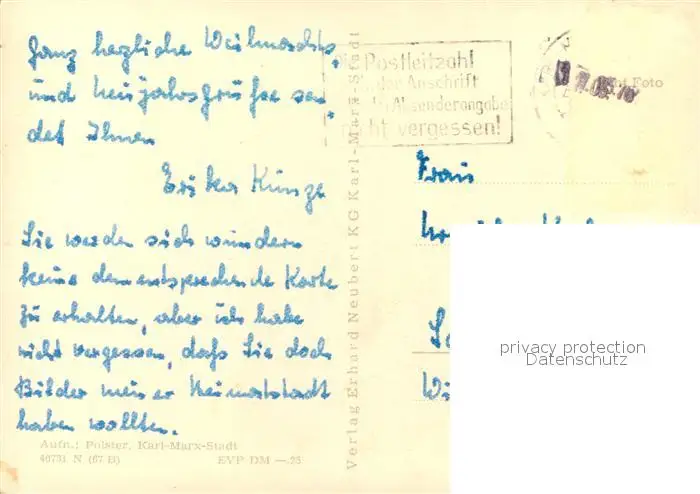 Ganz herzliche Weihnachts-
und Neujahrsgrüße sen-
det Ihnen
Erika Kunze
Sie werden sich wundern
keine dementsprechende Karte
zu erhalten, aber ich habe
nicht vergessen, daß Sie doch
Bilder meiner Heimatstadt
haben wollten.
Aufn.: Polster, Karl-Marx-Stadt
EVP DM —.25
Verlag Erhard Neubert KG Karl-Marx-Stadt
Die Postleitzahl
der Anschrift
Absenderangabe
nicht vergessen!
Foto
Frau
privacy protection
Datenschutz